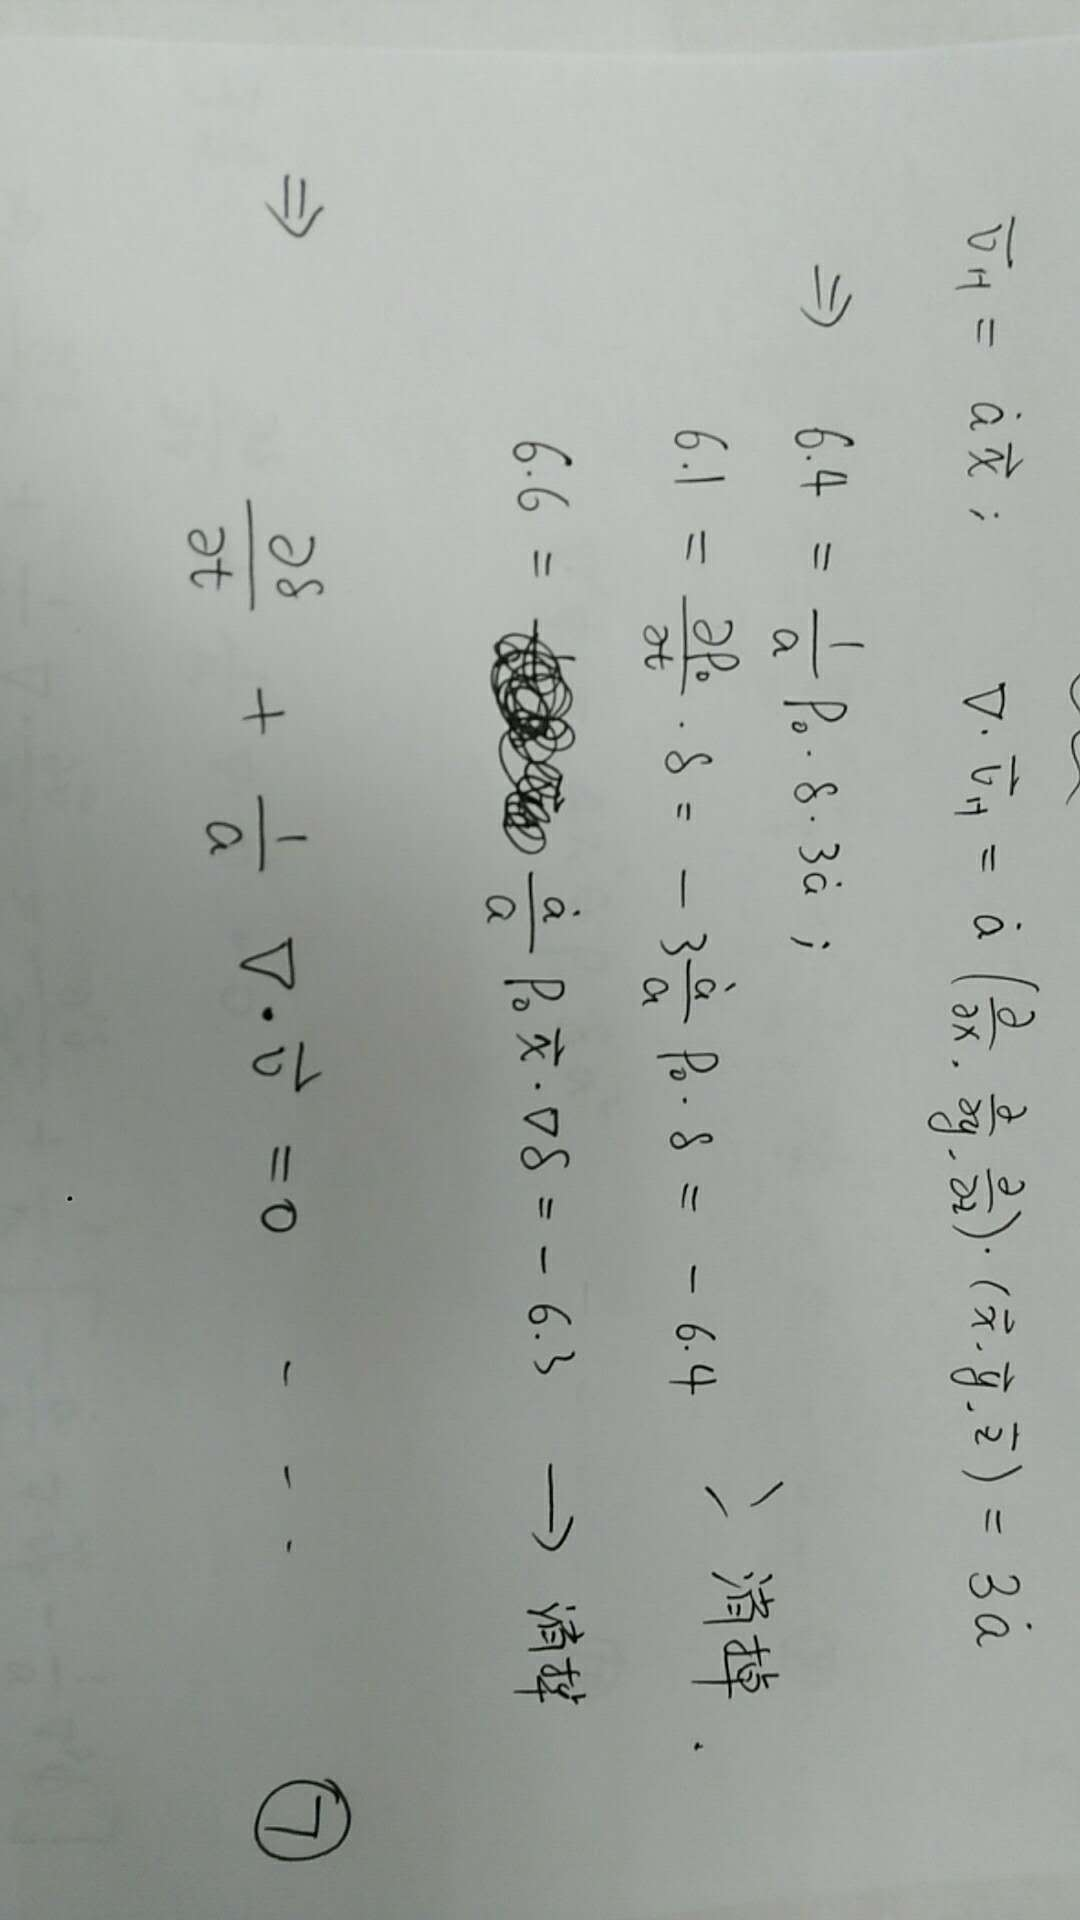 v⃗_H = ȧx⃗ ; ∇·v⃗_H = ȧ (∂/∂x, ∂/∂y, ∂/∂z)·(x⃗, y⃗, z⃗) = 3ȧ
⇒ 6.4 = 1/a ρ₀·δ·3ȧ ;
6.1 = ∂ρ₀/∂t · δ = - 3 ȧ/a ρ₀·δ = - 6.4 > 消掉.
6.6 = ȧ/a ρ₀ x⃗·∇δ = - 6.3 → 消掉
⇒ ∂δ/∂t + 1/a ∇·v⃗ = 0 - - - ⑦